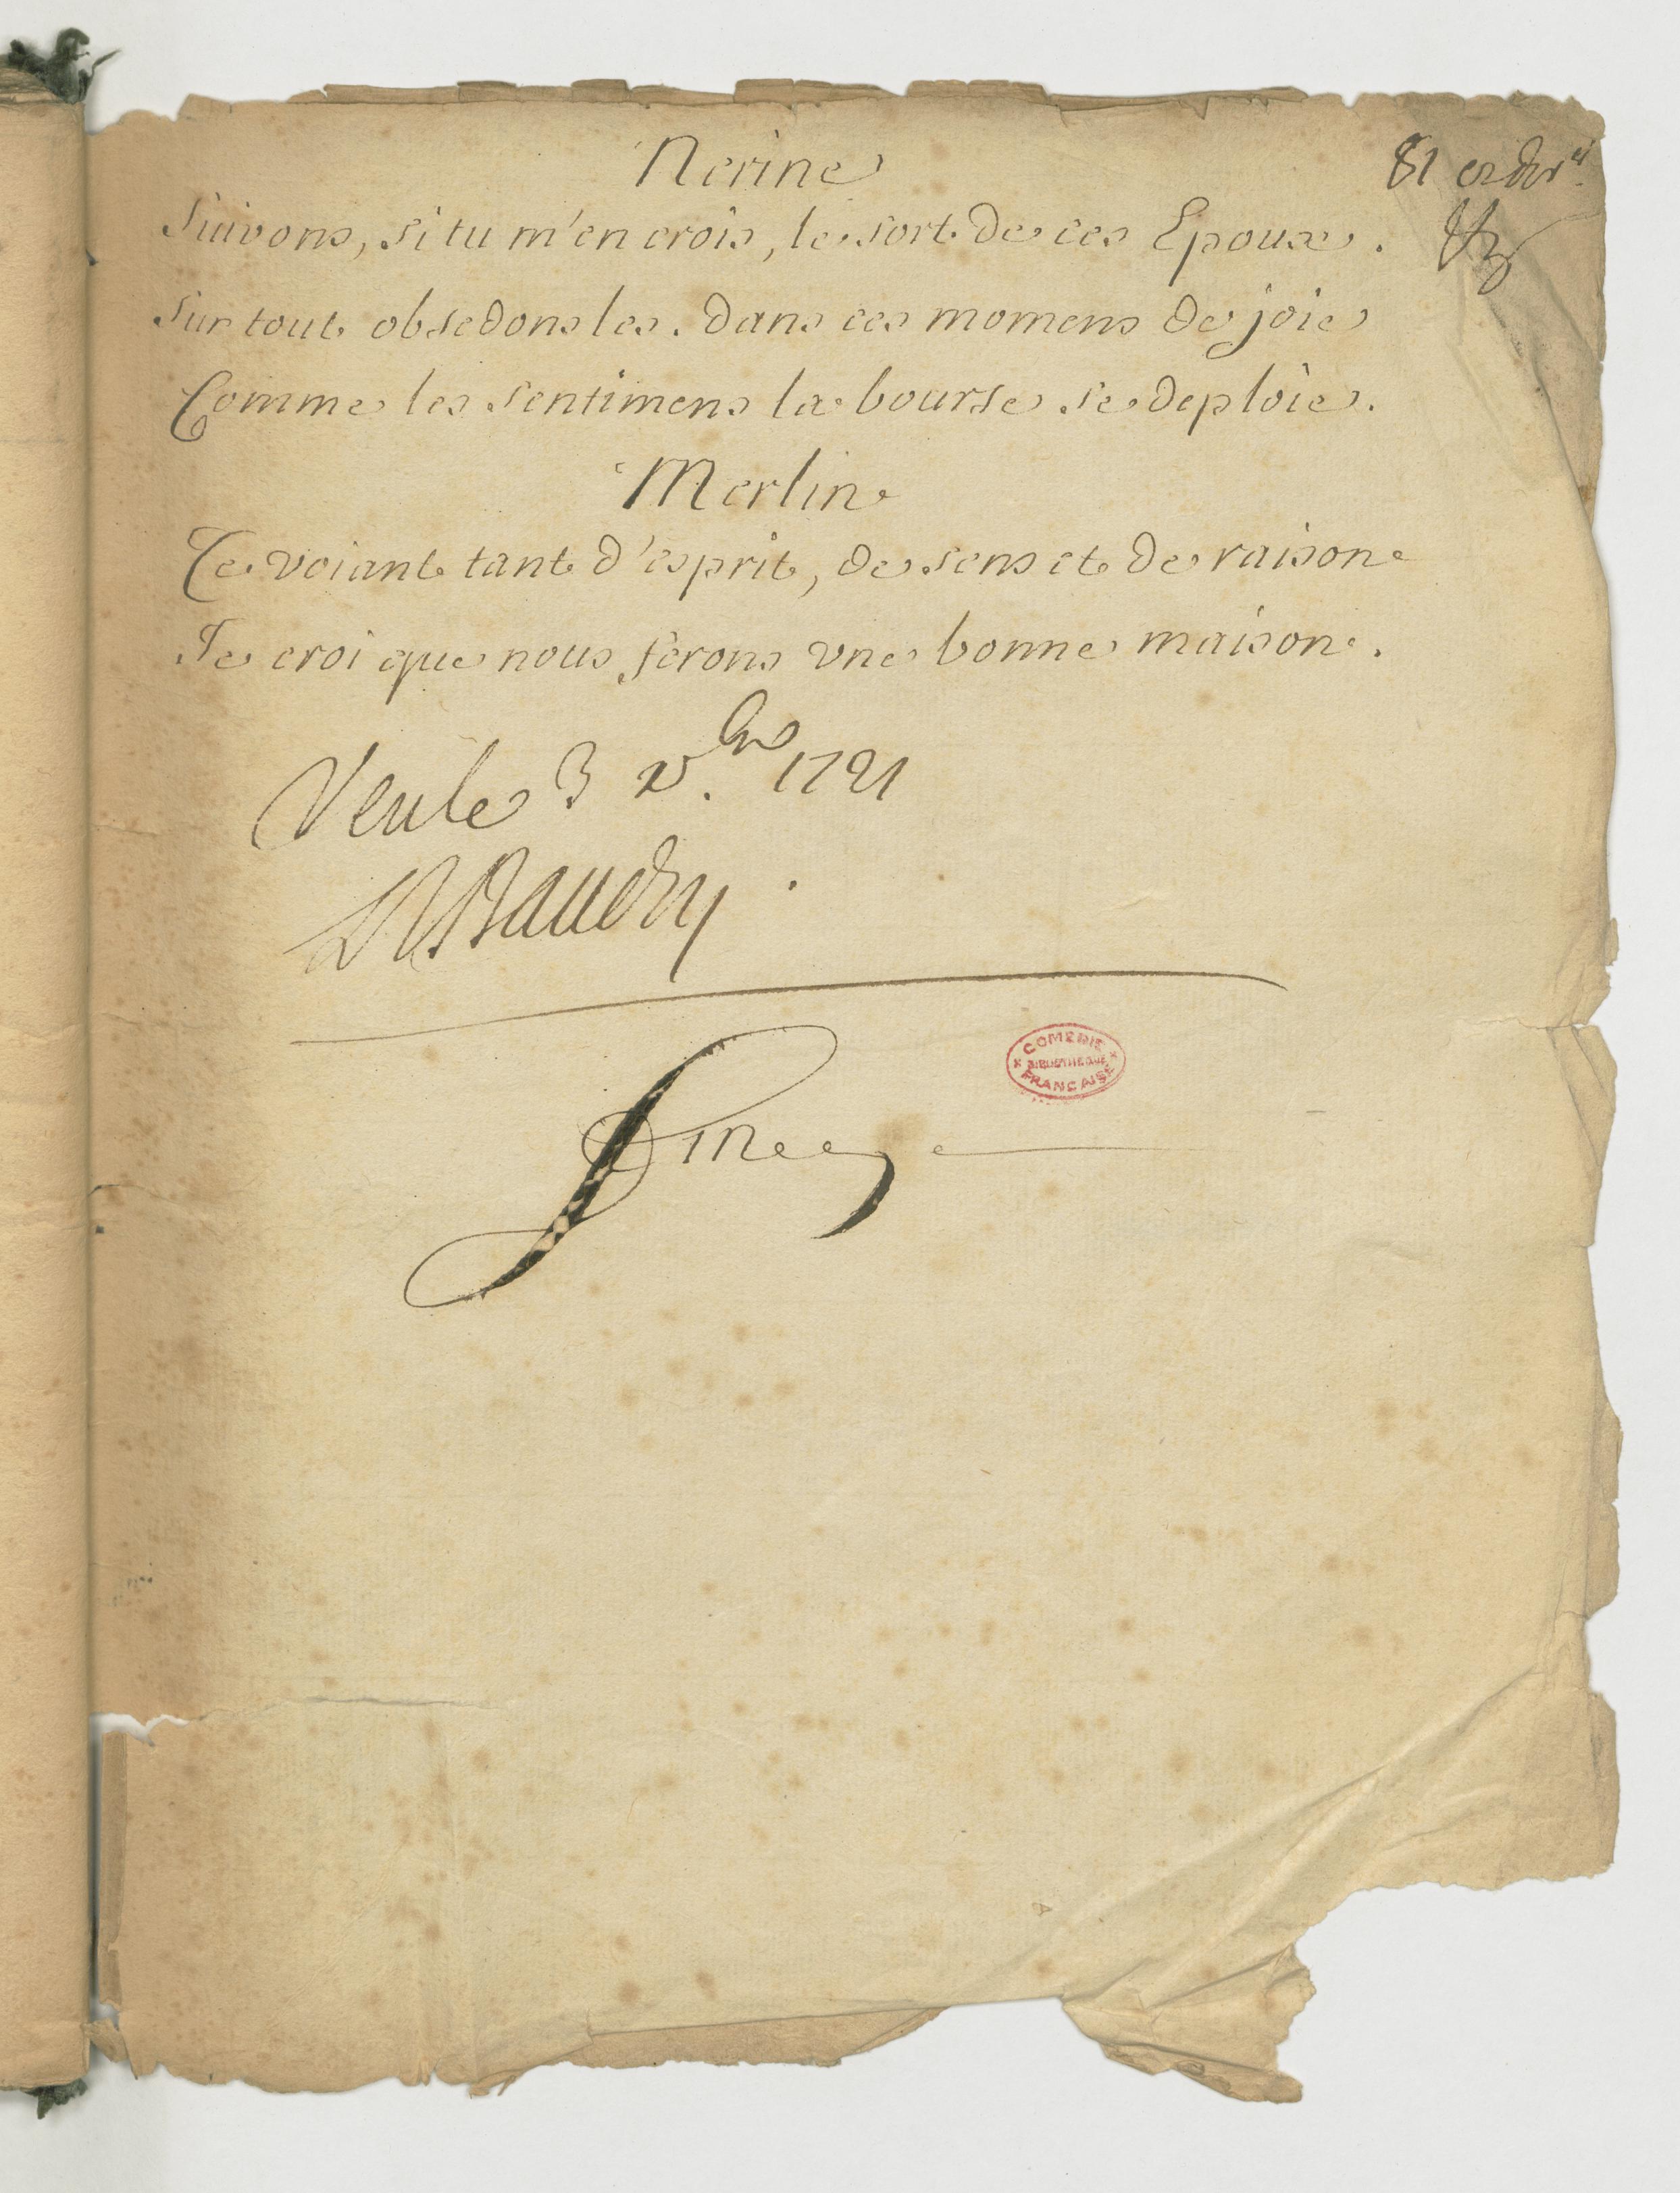 Nerine
81 et der.er
Suivons, si tu m'en crois, le sort de ces Epoux.
Sur tout obsedons les. dans ces momens de joie
Comme les sentimens la bourse se deploie.
Merlin
Te voiant tant d'esprit, de sens et de raison
Je croi que nous ferons une bonne maison.
Veu le 3 x.bre 1721
Baudry
Fin
COMEDIE FRANÇAISE
BIBLIOTHEQUE